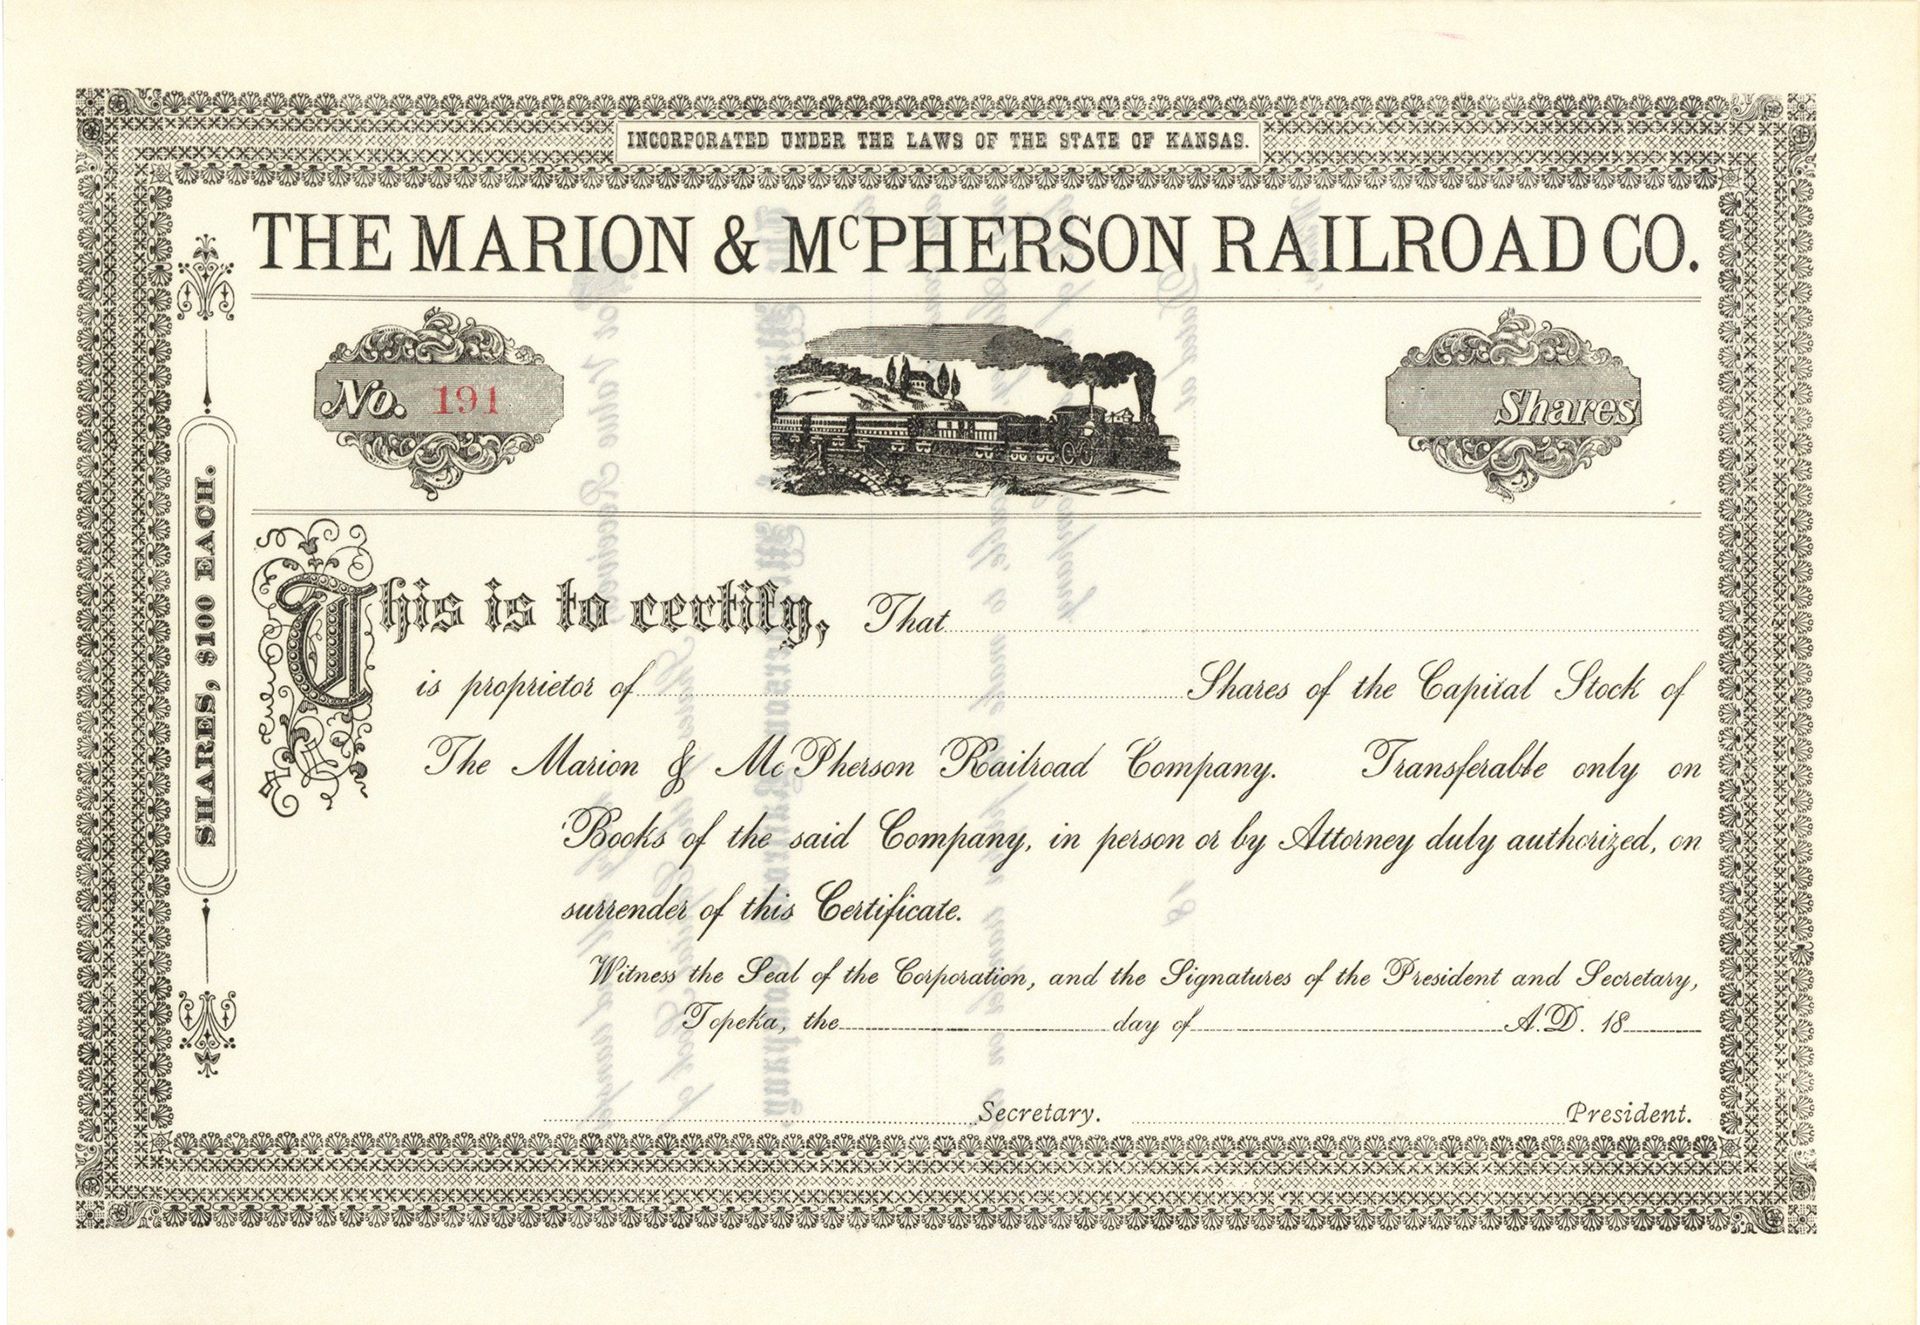 INCORPORATED UNDER THE LAWS OF THE STATE OF KANSAS.
THE MARION & McPHERSON RAILROAD CO.
No. 191
Shares
SHARES, $100 EACH.
This is to certify, That
is proprietor of Shares of the Capital Stock of
The Marion & McPherson Railroad Company. Transferable only on
Books of the said Company, in person or by Attorney duly authorized, on
surrender of this Certificate.
Witness the Seal of the Corporation, and the Signatures of the President and Secretary,
Topeka, the day of A.D. 18
Secretary. President.